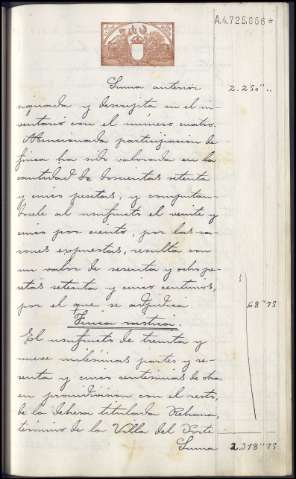 A.4.725.666*
Suma anterior 2.250"..
reguada y descrita en el in-
ventario con el número cuatro.
Mencionada participacion de
finca ha sido valorada en la
cantidad de doscientas setenta
y cinco pesetas, y computan-
dosele al usufructo el veinte y
cinco por ciento, por las ra-
zones expuestas, resulta con
un valor de sesenta y ocho pe-
setas setenta y cinco centimos,
por el que se adjudica 68"75
Finca rustica
El usufructo de treinta y
nueve milésimas partes y se-
senta y cinco centesimas de otra
en proindivision con el resto,
de la dehesa titulada
término de la Villa del
Suma 2.318"75